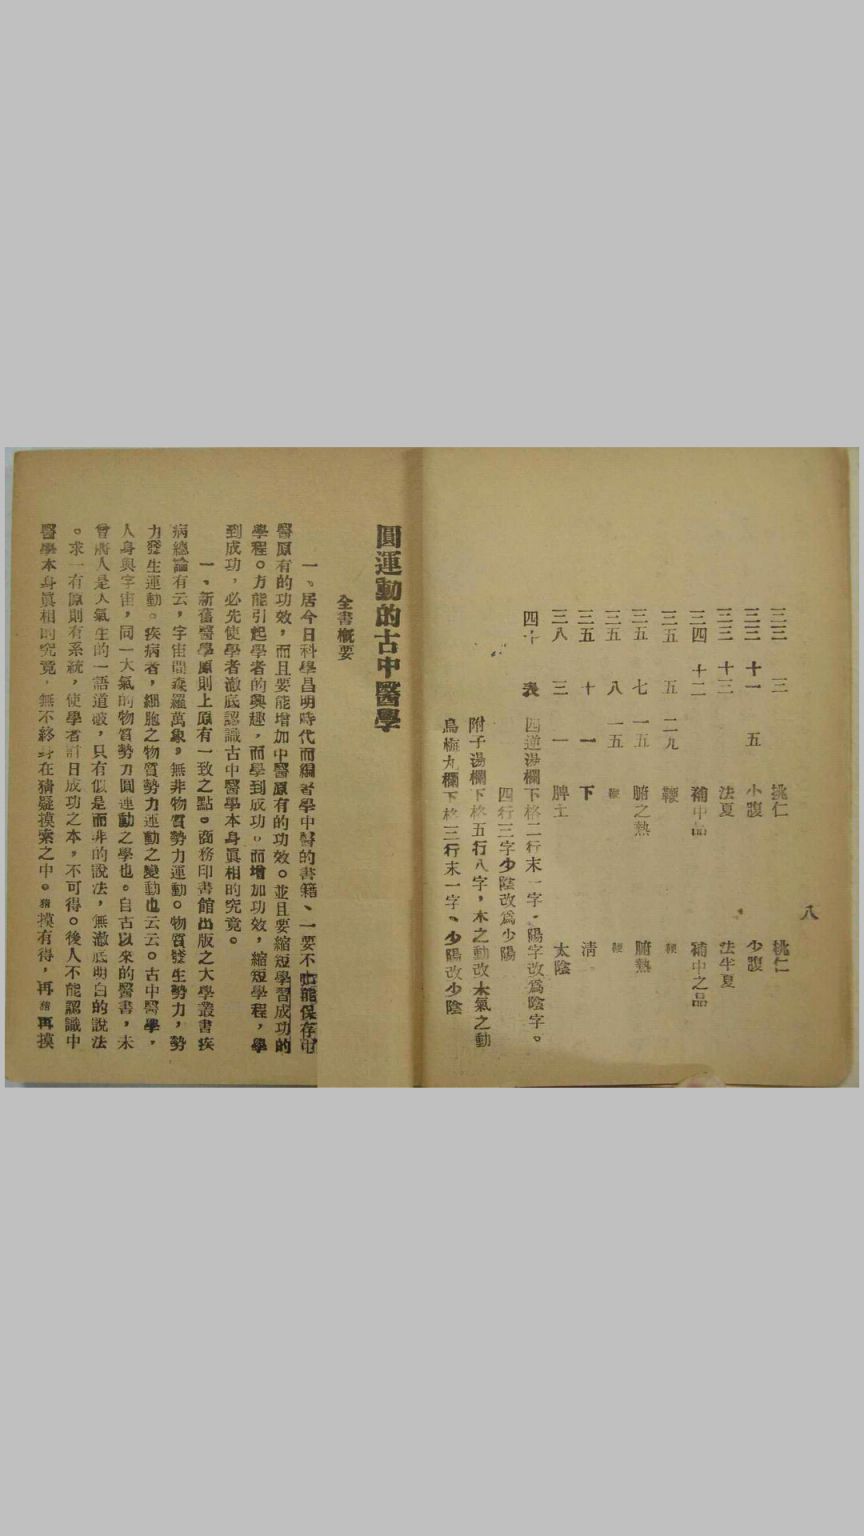 八
三三 三 挑仁 桃仁
三三 十一 五 小腹 少腹
三三 十三 法夏 法半夏
三四 十二 補中品 補中之品
三五 五 二九
三五 七 一五 腑之熱 腑熱
三五 八 一五
三五 十 一 下 淸
三八 三 一 脾土 太陰
四十 表 四逆湯欄下格二行末一字，陽字改爲陰字。
四行三字少陰改爲少陽
附子湯欄下格五行八字，木之動改木氣之動
烏梅丸欄下格三行末一字、少陽改少陰
圓運動的古中醫學
全書概要
一、居今日科學昌明時代而編著學中醫的書籍、一要不能保存中
醫原有的功效，而且要能增加中醫原有的功效。並且要縮短學習成功的
學程。方能引起學者的興趣，而學到成功。而增加功效，縮短學程，學
到成功，必先使學者澈底認識古中醫學本身眞相的究竟。
一、新舊醫學原則上原有一致之點。商務印書館出版之大學叢書疾
病總論有云，宇宙間森羅萬象，無非物質勢力運動。物質發生勢力，勢
力發生運動。疾病者，細胞之物質勢力運動之變動也云云。古中醫學，
人身與宇宙，同一大氣的物質勢力圓運動之學也。自古以來的醫書，未
曾將人是大氣生的一語道破，只有似是而非的說法，無澈底明白的說法
。求一有原則有系統，使學者計日成功之本，不可得。後人不能認識中
醫學本身眞相的究竟，無不終身在猜疑摸索之中。猜摸有得，再猜再摸